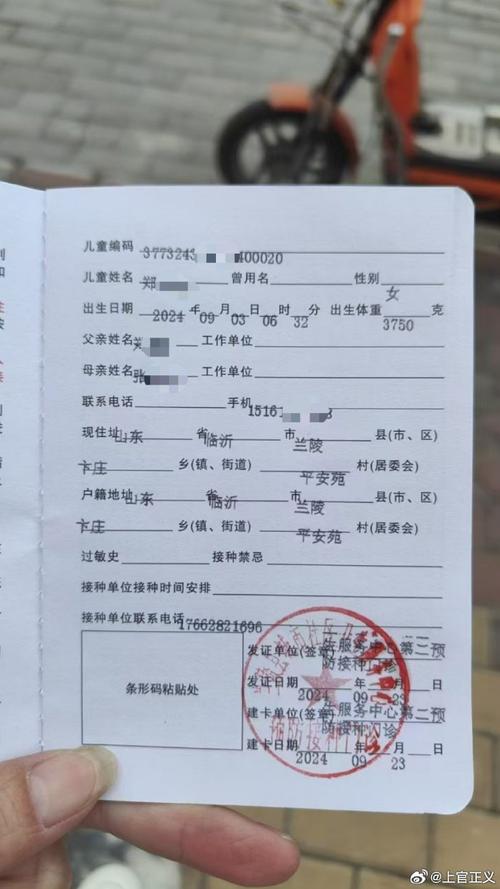 儿童编码 3773243 400020
儿童姓名 郑 曾用名 性别 女
出生日期 2024 年 09 月 03 日 06 时 32 分 出生体重 3750 克
父亲姓名 工作单位
母亲姓名 张 工作单位
联系电话 手机 15161 3
现住址 山东 省 临沂 市 兰陵 县(市、区)
卞庄 乡(镇、街道) 平安苑 村(居委会)
户籍地址 山东 省 临沂 市 兰陵 县(市、区)
卞庄 乡(镇、街道) 平安苑 村(居委会)
过敏史 接种禁忌
接种单位接种时间安排
接种单位联系电话 17662821696
条形码粘贴处
发证单位(签章) 生服务中心第二预
防接种门诊
发证日期 2024 年 09 月 23 日
建卡单位(签章) 生服务中心第二预
防接种门诊
建卡日期 2024 年 09 月 23 日
预防接种
@上官正义